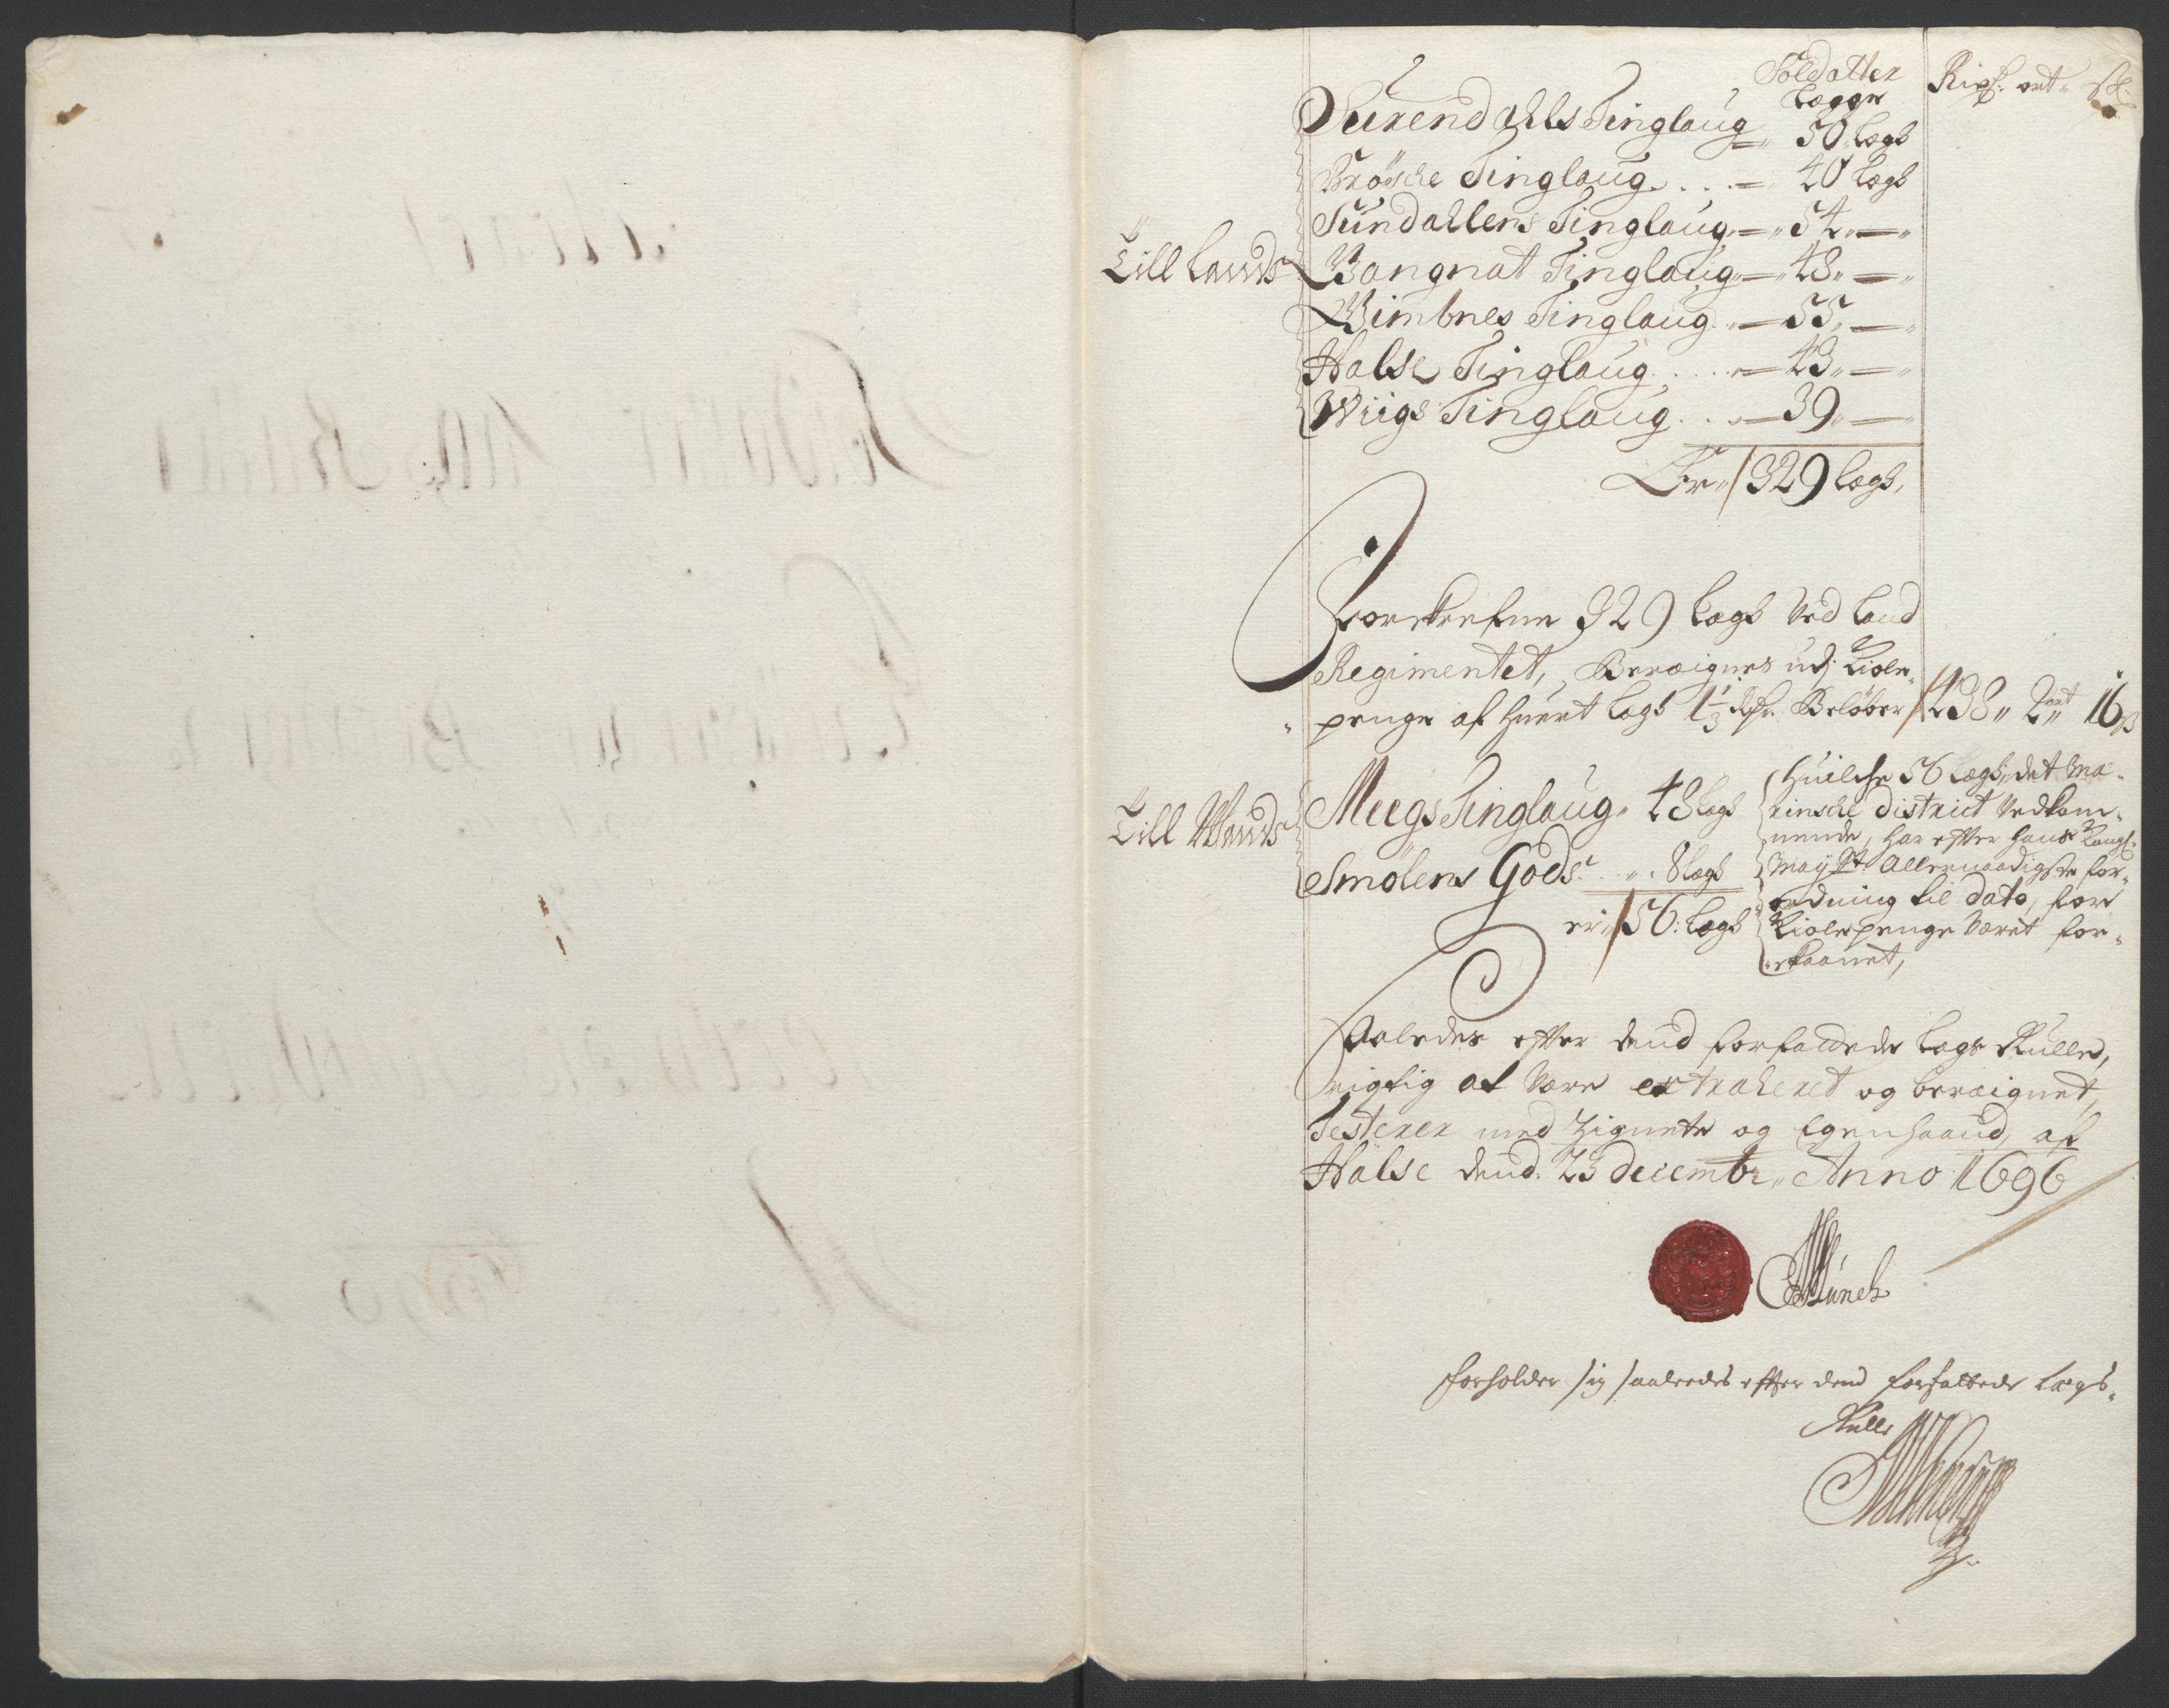 Soldatter Rixd. ort. sk.
Lægge
Surendahls Tinglaug 50 Legb
Brösche Tinglaug . . . 40 Legb
Sundallens Tinglaug 54
Till Lands Bangnat Tinglaug 48
Wimbnes Tinglaug 55
Halse Tinglaug . . . . 43
Wiigs Tinglaug . . . 39
Er 329 Legb,
Forskrefne 329 Legb Ved Land
Regimentet, Beræignes udj Kiole-
penge af Huert Legb 1 1/3 Rdr. Beløber 438 2 ort 16 s
Till Wands Meegs Tinglaug 48 Legb
Smølens Gods . . 8 Legb
er 56: Legb
Huilche 56 Legb, det Ma-
rinsche District Vedkom-
mende, har efter Hans Kongl.
Mayst: Allernaadigste for-
ordning til dato, for
Kiolepenge Været for-
skaanet,
Saaledes efter dend forfattede Legs Rulle,
rigtig at Være extraheret og beræignet,
Testerer med Zignete og Egenhaand, af
Halse dend. 23 decembr. Anno 1696
Münch
forholder sig saaledes efter dend forfattede Legs-
Rulle